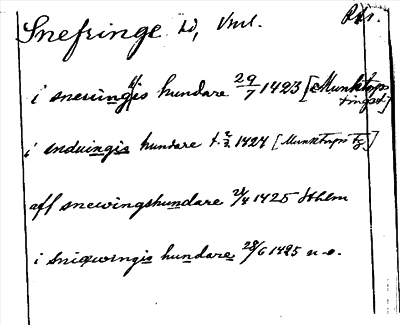 Snefringe hd, Vml. Rfs.
i sneuingis hundare 29/7 1423 [Munktorps
tingsl]
i snduingis hundare t. 2/2 1424 [Munktorps tg]
aff snewingshundare 24/4 1425 Sthlm
i sniqwingis hundare 28/6 1425 n-o.